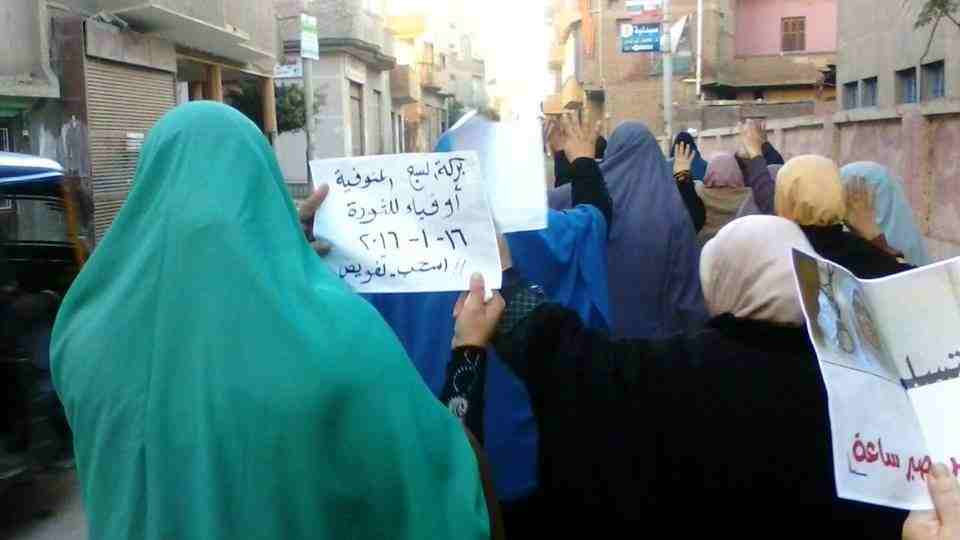 بركة السبع المنوفية
أوفياء للثورة
١٦-١-٢٠١٦
// اسحب تفويض
صيدلية
صبر ساعة